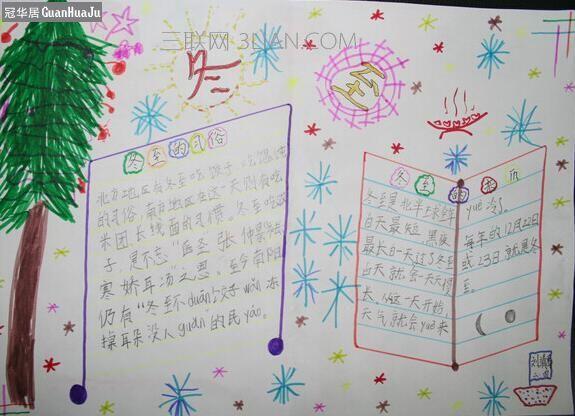 冠华居 GuanHuaJu
三联网 3LIAN.COM
冬至
冬至的习俗
北方地区有冬至吃饺子、吃馄饨
的习俗，南方地区在这一天则有吃
米团长线面的习惯。冬至吃饺
子，是不忘“医圣”张仲景“祛
寒娇耳汤”之恩。至今南阳
仍有“冬至不duān饺子wǎn，冻
掉耳朵没人guǎn”的民yáo。
冬至的
冬至是北半球全年
白天最短、黑夜
最长的一天过了冬至
白天就会一天天增
长，从这一天开始
天气就会yuè来
yuè冷了。
每年的12月22日
或23日就是冬
至。